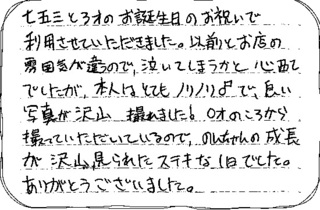 七五三と3才のお誕生日のお祝いで
利用させていただきました。以前とお店の
雰囲気が違うので、泣いてしまうかと心配
でしたが、本人はとてもノリノリ♪で、良い
写真が沢山 撮れました! 0才のころから
撮っていただいているので、のんちゃんの成長
が 沢山、見られた ステキな1日でした。
ありがとうございました。